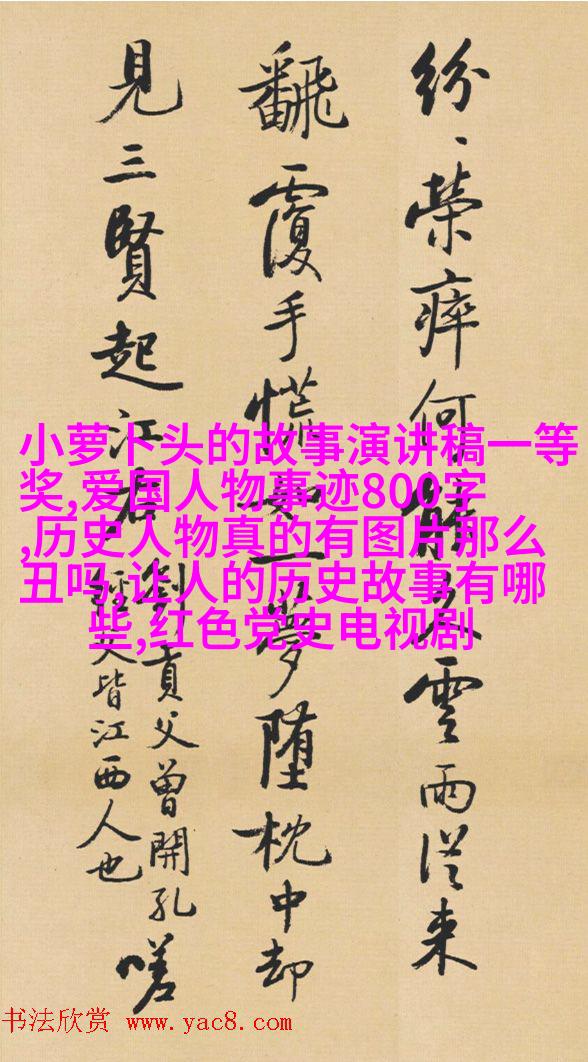 紛、榮瘁何能久雲雨從來
飜覆手慌如一夢墮枕中却
見三賢起江右
劉貢父曾開孔
經父皆江西人也
嗟
小萝卜头的故事演讲稿一等
奖,爱国人物事迹800字
,历史人物真的有图片那么
丑吗,让人的历史故事有哪
些,红色党史电视剧
书法欣赏 www.yac8.com